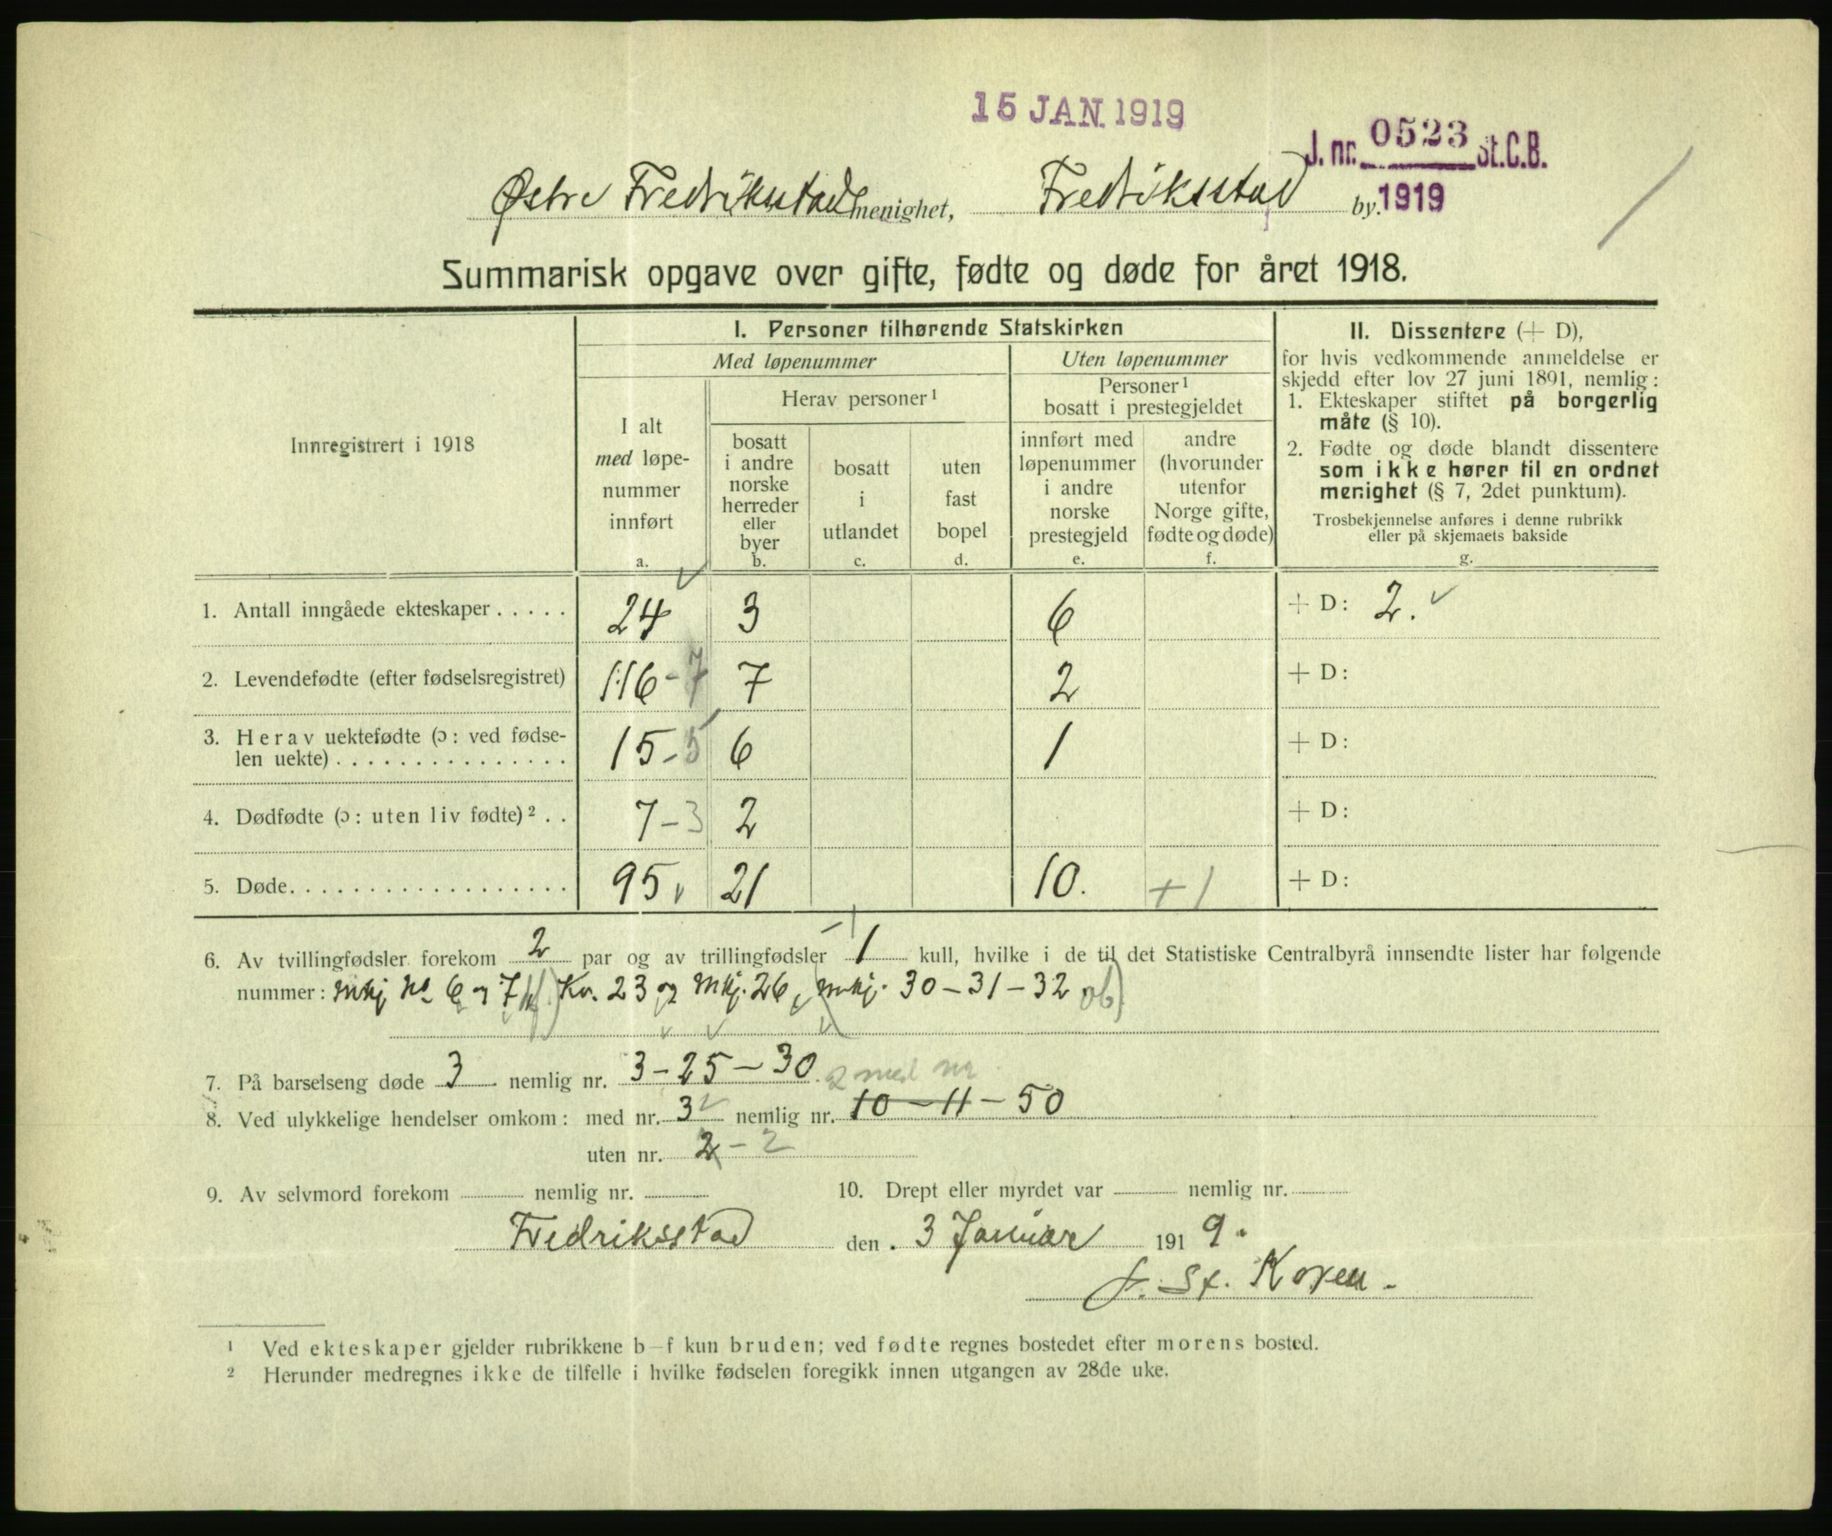 15 JAN. 1919
J. nr. 0523 St.C.B.
1919
Østre Fredriksstad menighet, Fredriksstad by.
Summarisk opgave over gifte, fødte og døde for året 1918.
Innregistrert i 1918
I. Personer tilhørende Statskirken
Med løpenummer
Uten løpenummer
I alt
med løpe-
nummer
innført
a.
Herav personer ¹
bosatt
i andre
norske
herreder
eller
byer
b.
bosatt
i
utlandet
c.
uten
fast
bopel
d.
Personer ¹
bosatt i prestegjeldet
innført med
løpenummer
i andre
norske
prestegjeld
e.
andre
(hvorunder
utenfor
Norge gifte,
fødte og døde)
f.
II. Dissentere (+ D),
for hvis vedkommende anmeldelse er
skjedd efter lov 27 juni 1891, nemlig:
1. Ekteskaper stiftet på borgerlig
måte (§ 10).
2. Fødte og døde blandt dissentere
som ikke hører til en ordnet
menighet (§ 7, 2det punktum).
Trosbekjennelse anføres i denne rubrikk
eller på skjemaets bakside
g.
1. Antall inngåede ekteskaper . . . . . 24 3 6 + D: 2.
2. Levendefødte (efter fødselsregistret) 116 - 7 7 2 + D:
3. Herav uektefødte (ɔ: ved fødse-
len uekte) . . . . . . . . . . . . . . . 15 - 5 6 1 + D:
4. Dødfødte (ɔ: uten liv fødte) ² . . 7 - 3 2 + D:
5. Døde. . . . . . . . . . . . . . . . . . 95 21 10. + 1 + D:
6. Av tvillingfødsler forekom 2 par og av trillingfødsler 1 kull, hvilke i de til det Statistiske Centralbyrå innsendte lister har følgende
nummer: Mkj No 6 og 7 Kv. 23 og Mkj. 26, mkj. 30 - 31 - 32
7. På barselseng døde 3 nemlig nr. 3 - 25 - 30 2 med nr
8. Ved ulykkelige hendelser omkom: med nr. 3 nemlig nr. 10 - 11 - 50
uten nr. 2 - 2
9. Av selvmord forekom nemlig nr. 10. Drept eller myrdet var nemlig nr.
Fredriksstad den 3 Januar 1919.
J. St. Koren.
¹ Ved ekteskaper gjelder rubrikkene b–f kun bruden; ved fødte regnes bostedet efter morens bosted.
² Herunder medregnes ikke de tilfelle i hvilke fødselen foregikk innen utgangen av 28de uke.